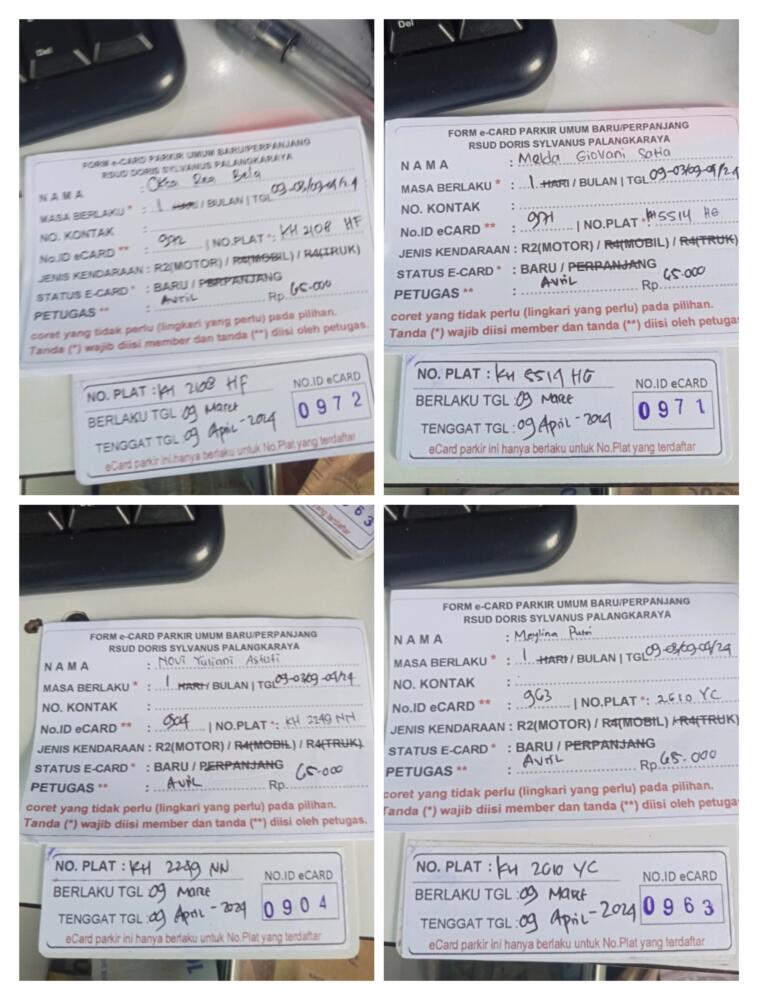 Del
FORM e-CARD PARKIR UMUM BARU/PERPANJANG
RSUD DORIS SYLVANUS PALANGKARAYA
NAMA : Okta Rea Bela
MASA BERLAKU * : 1 HARI / BULAN | TGL 09-03/09-04/24
NO. KONTAK :
No.ID eCARD ** : 972 | NO.PLAT * : KH 2108 HF
JENIS KENDARAAN : R2(MOTOR) / R4(MOBIL) / R4(TRUK)
STATUS E-CARD * : BARU / PERPANJANG
PETUGAS ** : Avril Rp. 65.000
coret yang tidak perlu (lingkari yang perlu) pada pilihan.
Tanda (*) wajib diisi member dan tanda (**) diisi oleh petugas.
NO. PLAT : KH 2108 HF
BERLAKU TGL : 09 Maret
TENGGAT TGL : 09 April - 2024
NO.ID eCARD
0972
eCard parkir ini hanya berlaku untuk No.Plat yang terdaftar
Del
FORM e-CARD PARKIR UMUM BARU/PERPANJANG
RSUD DORIS SYLVANUS PALANGKARAYA
NAMA : Melda Giovani
MASA BERLAKU * : 1 HARI / BULAN | TGL 09-03/09-04/24
NO. KONTAK :
No.ID eCARD ** : 971 | NO.PLAT * : KH 5514 HG
JENIS KENDARAAN : R2(MOTOR) / R4(MOBIL) / R4(TRUK)
STATUS E-CARD * : BARU / PERPANJANG
PETUGAS ** : Avril Rp. 65.000
coret yang tidak perlu (lingkari yang perlu) pada pilihan.
Tanda (*) wajib diisi member dan tanda (**) diisi oleh petuga
NO. PLAT : KH 5514 HG
BERLAKU TGL : 09 Maret
TENGGAT TGL : 09 April - 2024
NO.ID eCARD
0971
eCard parkir ini hanya berlaku untuk No.Plat yang terdaftar
63
yang terdaftar
FORM e-CARD PARKIR UMUM BARU/PERPANJANG
RSUD DORIS SYLVANUS PALANGKARAYA
NAMA : Novi Yuliani Astuti
MASA BERLAKU * : 1 HARI / BULAN | TGL 09-03/09-04/24
NO. KONTAK :
No.ID eCARD ** : 904 | NO.PLAT * : KH 2249 NN
JENIS KENDARAAN : R2(MOTOR) / R4(MOBIL) / R4(TRUK)
STATUS E-CARD * : BARU / PERPANJANG
PETUGAS ** : Avril Rp. 65-000
coret yang tidak perlu (lingkari yang perlu) pada pilihan.
Tanda (*) wajib diisi member dan tanda (**) diisi oleh petugas.
NO. PLAT : KH 2249 NN
BERLAKU TGL : 09 Maret
TENGGAT TGL : 09 April - 2024
NO.ID eCARD
0904
eCard parkir ini hanya berlaku untuk No.Plat yang terdaftar
FORM e-CARD PARKIR UMUM BARU/PERPANJANG
RSUD DORIS SYLVANUS PALANGKARAYA
NAMA : Meylina Putri
MASA BERLAKU * : 1 HARI / BULAN | TGL 09-03/09-04/24
NO. KONTAK :
No.ID eCARD ** : 963 | NO.PLAT * : 2610 YC
JENIS KENDARAAN : R2(MOTOR) / R4(MOBIL) / R4(TRUK)
STATUS E-CARD * : BARU / PERPANJANG
PETUGAS ** : Avril Rp. 65.000
coret yang tidak perlu (lingkari yang perlu) pada pilihan.
Tanda (*) wajib diisi member dan tanda (**) diisi oleh petuga
NO. PLAT : KH 2610 YC
BERLAKU TGL : 09 Maret
TENGGAT TGL : 09 April - 2024
NO.ID eCARD
0963
eCard parkir ini hanya berlaku untuk No.Plat yang terdaftar